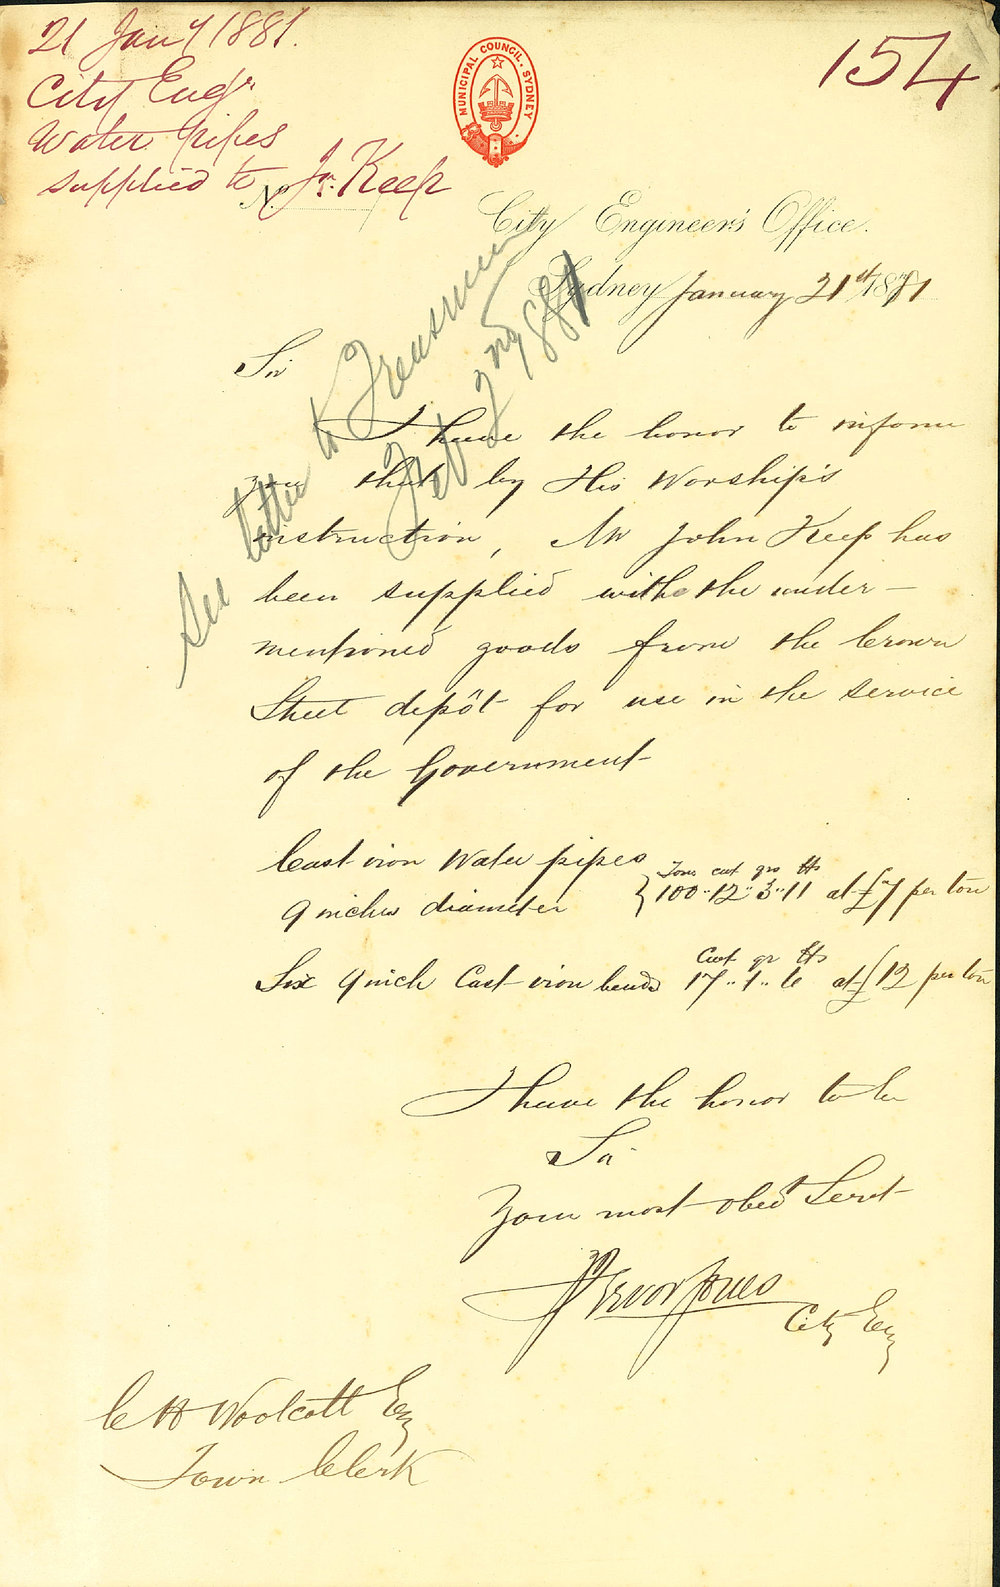 21 Jany 1881.
City Engr
Water Pipes
supplied to Jn. Keep
154
MUNICIPAL COUNCIL. SYDNEY
No
City Engineer's Office.
Sydney January 21st 1881
See letter to Treasurer
Feb 2nd 1881
Sir
I have the honor to inform
you that by His Worship's
instruction, Mr John Keep has
been supplied with the under-
mentioned goods from the Crown
Street depôt for use in the service
of the Government
Cast iron Water pipes
9 inches diameter } Tons cwt qrs lbs 100..12..3..11 at £7 per ton
Six 9 inch Cast iron bends Cwt qr lbs 17..1..6 at £12 per ton
I have the honor to be
Sir
Your most obedt Servt
Trevor Jones
City Eng
C H Woolcott Esq
Town Clerk